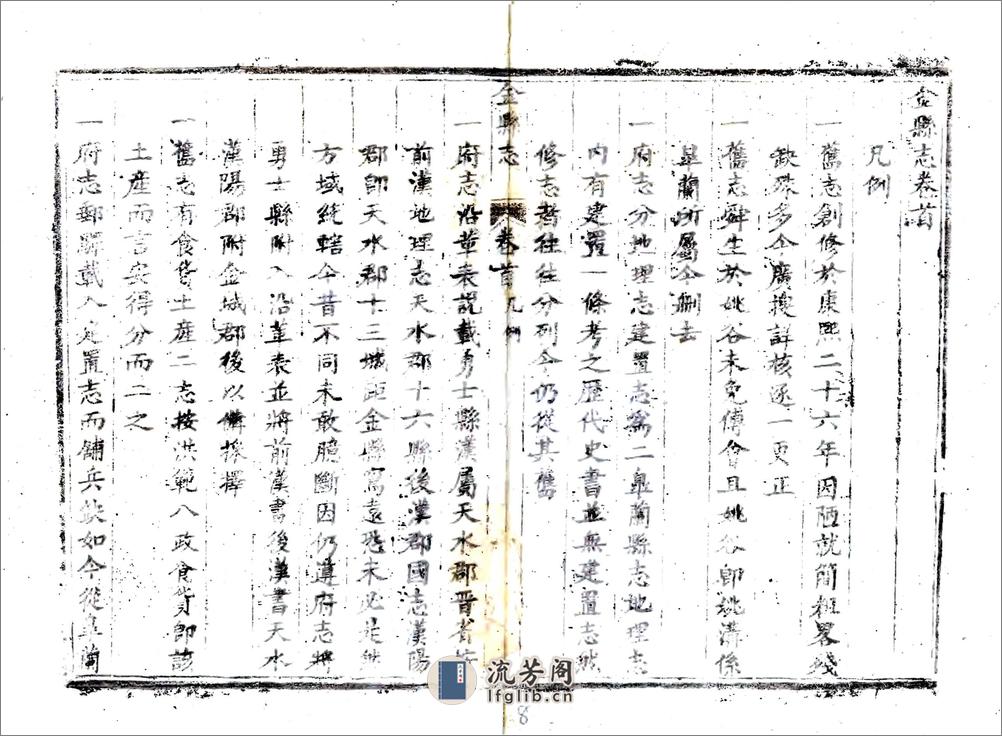 金縣志卷首
凡例
一舊志創修於康熙二十六年因陋就簡粗畧殘
缺殊多今廣搜詳核逐一更正
一舊志舜生於姚谷未免傅會且姚谷即姚溝係
皐蘭所屬今刪去
一府志分地理志建置志為二皐蘭縣志地理志
內有建置一條考之歷代史書並無建置志
修志者往往分列今仍從其舊
金縣志 卷首 凡例
一府志沿革表說載勇士縣漢屬天水郡晉省按
前漢地理志天水郡十六縣後漢郡國志漢陽
郡即天水郡十三城距金縣寫遠恐未必是然
方域統轄今昔不同未敢臆斷因仍遵府志將
勇士縣附入沿革表並將前漢書後漢書天水
漢陽郡附金城郡後以備採擇
一舊志有食貨土產二志按洪範八政食貨即該
土產而言安得分而二之
一府志郵驛載入建置志而舖兵缺如今從皐蘭
流芳阁
lfglib.cn
8